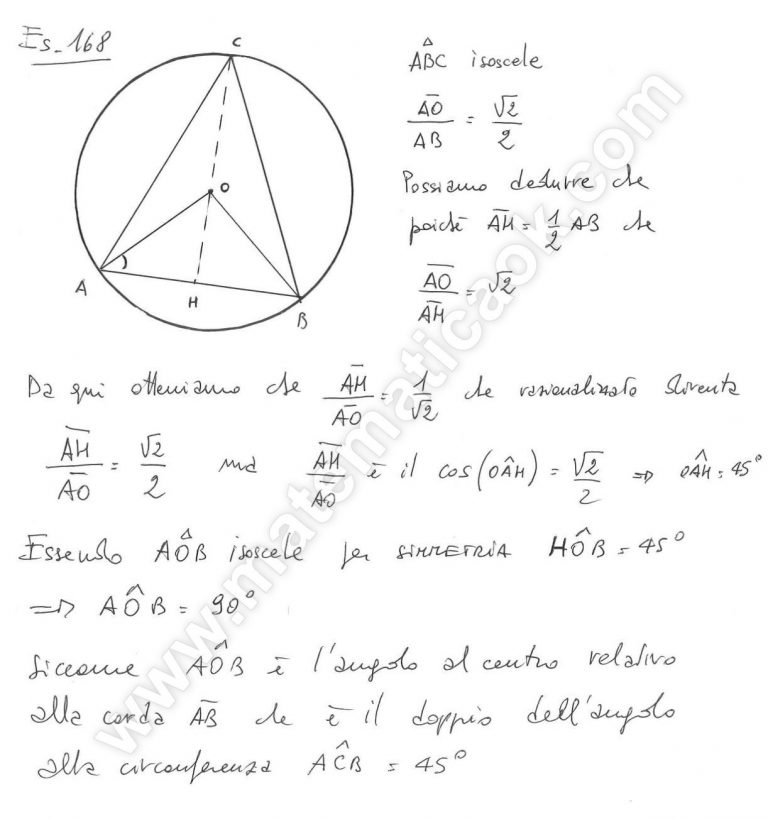 Es. 168
C
O
A
H
B
AB̂C isoscele
AO/AB = √2/2
Possiamo dedurre che
poiché AH = 1/2 AB che
AO/AH = √2
Da qui otteniamo che AH/AO = 1/√2 che razionalizzato diventa
AH/AO = √2/2 ma AH/AO è il cos(OÂH) = √2/2 => OÂH = 45°
Essendo AÔB isoscele per SIMMETRIA HÔB = 45°
=> AÔB = 90°
Siccome AÔB è l'angolo al centro relativo
alla corda AB che è il doppio dell'angolo
alla circonferenza AĈB = 45°
www.matematicaok.com